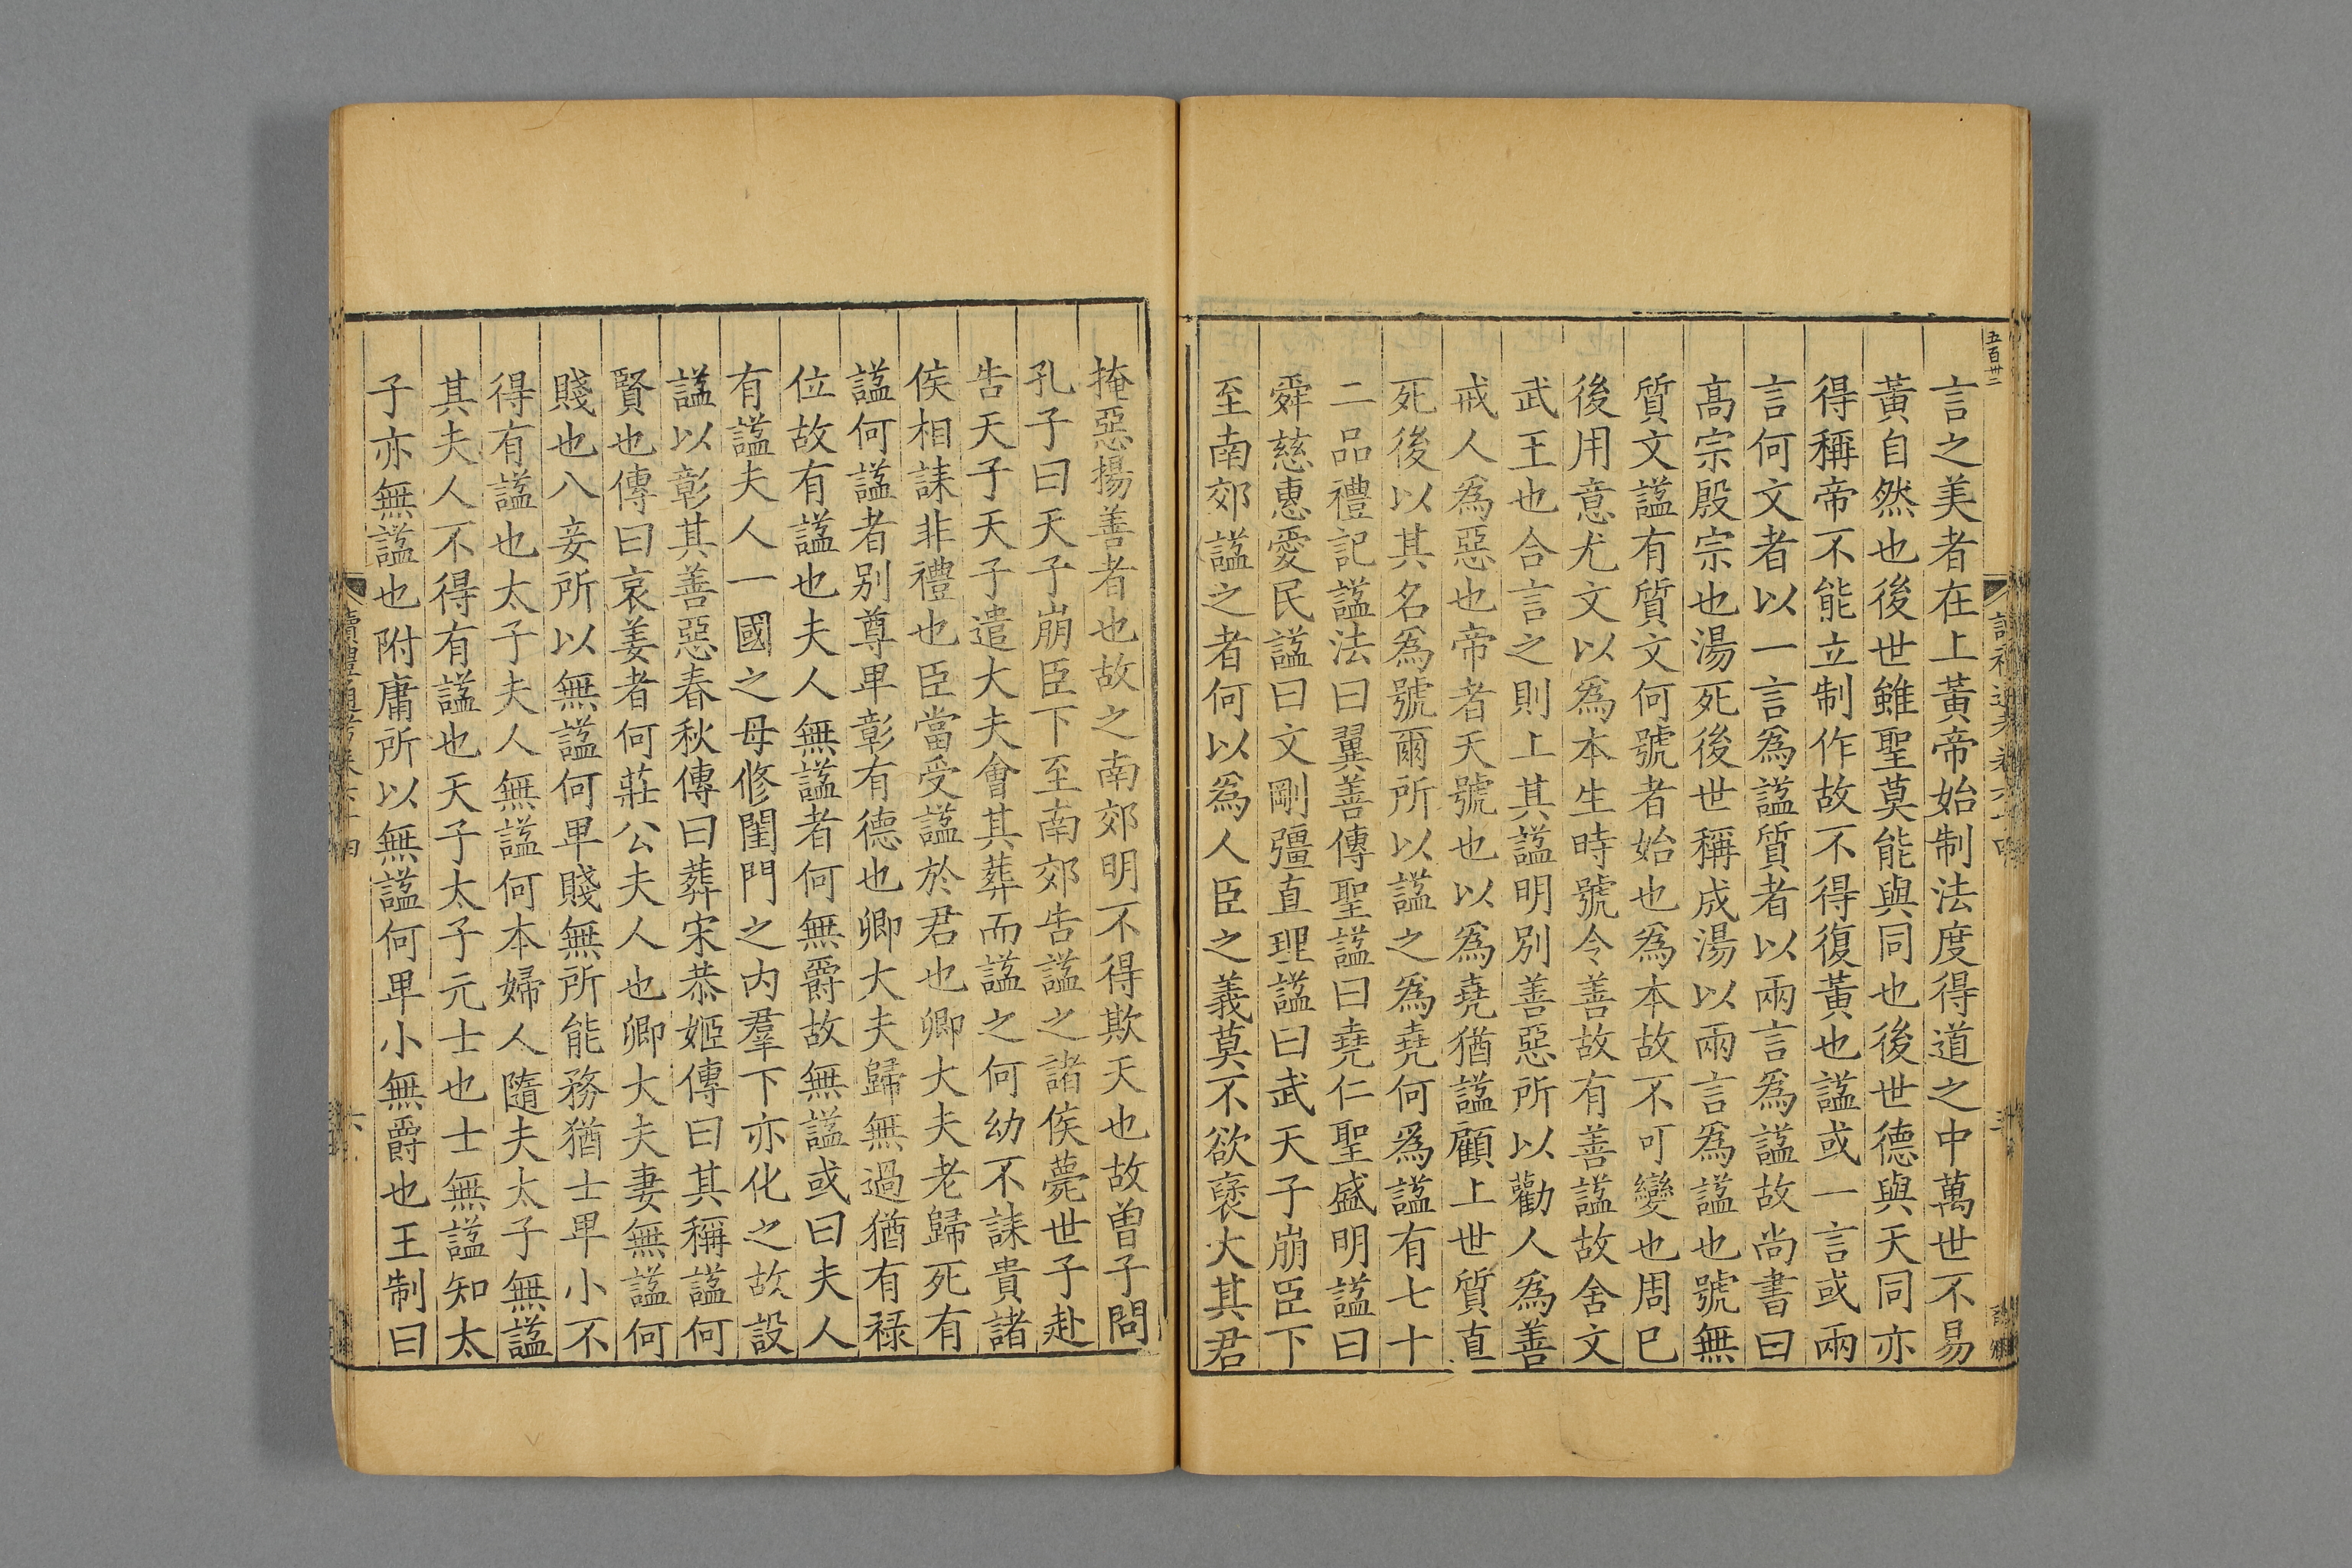 五百卅二
言之美者在上黃帝始制法度得道之中萬世不易
黃自然也後世雖聖莫能與同也後世德與天同亦
得稱帝不能立制作故不得復黃也諡或一言或兩
言何文者以一言爲諡質者以兩言爲諡故尚書曰
髙宗殷宗也湯死後世稱成湯以兩言爲諡也號無
質文諡有質文何號者始也爲本故不可變也周已
後用意尤文以爲本生時號令善故有善諡故舍文
武王也合言之則上其諡明別善惡所以勸人爲善
戒人爲惡也帝者天號也以爲堯猶諡顧上世質直
死後以其名爲號爾所以諡之爲堯何爲諡有七十
二品禮記諡法曰翼善傳聖諡曰堯仁聖盛明諡曰
舜慈惠愛民諡曰文剛彊直理諡曰武天子崩臣下
至南郊諡之者何以爲人臣之義莫不欲褒大其君
掩惡揚善者也故之南郊明不得欺天也故曽子問
孔子曰天子崩臣下至南郊告諡之諸侯薨世子赴
告天子天子遣大夫會其葬而諡之何幼不誄貴諸
侯相誄非禮也臣當受諡於君也卿大夫老歸死有
諡何諡者別尊卑彰有德也卿大夫歸無過猶有祿
位故有諡也夫人無諡者何無爵故無諡或曰夫人
有諡夫人一國之母修閨門之内羣下亦化之故設
諡以彰其善惡春秋傳曰葬宋恭姬傳曰其稱諡何
賢也傳曰哀姜者何莊公夫人也卿大夫妻無諡何
賤也八妾所以無諡何卑賤無所能務猶士卑小不
得有諡也太子夫人無諡何本婦人隨夫太子無諡
其夫人不得有諡也天子太子元士也士無諡知太
子亦無諡也附庸所以無諡何卑小無爵也王制曰
讀禮通考卷六十四
六